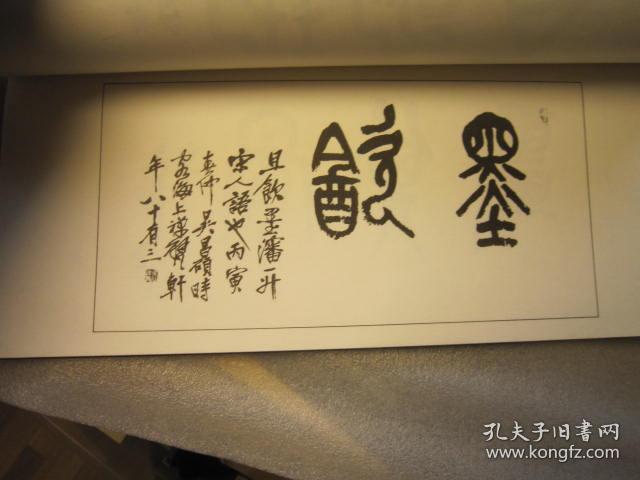 墨
歙
且飲墨瀋一升
宋人語也丙寅
春仲吳昌碩時
客海上禪甓軒
年八十有三
孔夫子旧書网
www.kongfz.com